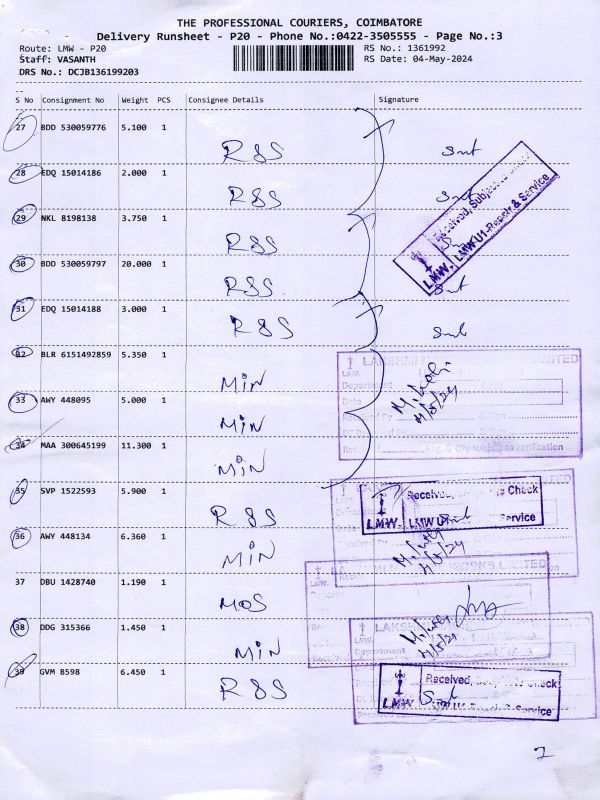 THE PROFESSIONAL COURIERS, COIMBATORE
Delivery Runsheet - P20 - Phone No.:0422-3505555 - Page No.:3
Route: LMW - P20 RS No.: 1361992
Staff: VASANTH RS Date: 04-May-2024
DRS No.: DCJB136199203
S No Consignment No Weight PCS Consignee Details Signature
27 BDD 530059776 5.100 1
R&S
28 EDQ 15014186 2.000 1
R&S
29 NKL 8198138 3.750 1
R&S
30 BDD 530059797 20.000 1
R&S
31 EDQ 15014188 3.000 1
R&S
32 BLR 6151492859 5.350 1
MiN
33 AWY 448095 5.000 1
MiN
34 MAA 300645199 11.300 1
MiN
35 SVP 1522593 5.900 1
R&S
36 AWY 448134 6.360 1
MiN
37 DBU 1428740 1.190 1
MOS
38 DDG 315366 1.450 1
MiN
39 GVM 8598 6.450 1
R&S
Received, Subject to
LMW LMW U1-Repair & Service
LIMITED
LMW.
Department
Date
4/5/24
Received, Check
LMW LMW U1 Service
4/5/24
WORKS LIMITED
LAKSHMI
LMW.
Department
4/5/24
Received, Check
LMW Service
7